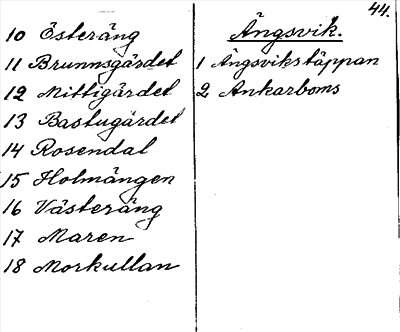 44.
10 Österäng
11 Brunnsgärdet
12 Mittigärdet
13 Bastugärdet
14 Rosendal
15 Holmängen
16 Västeräng
17 Maren
18 Morkullan
Ängsvik.
1 Ängsvikstäppan
2 Ankarboms